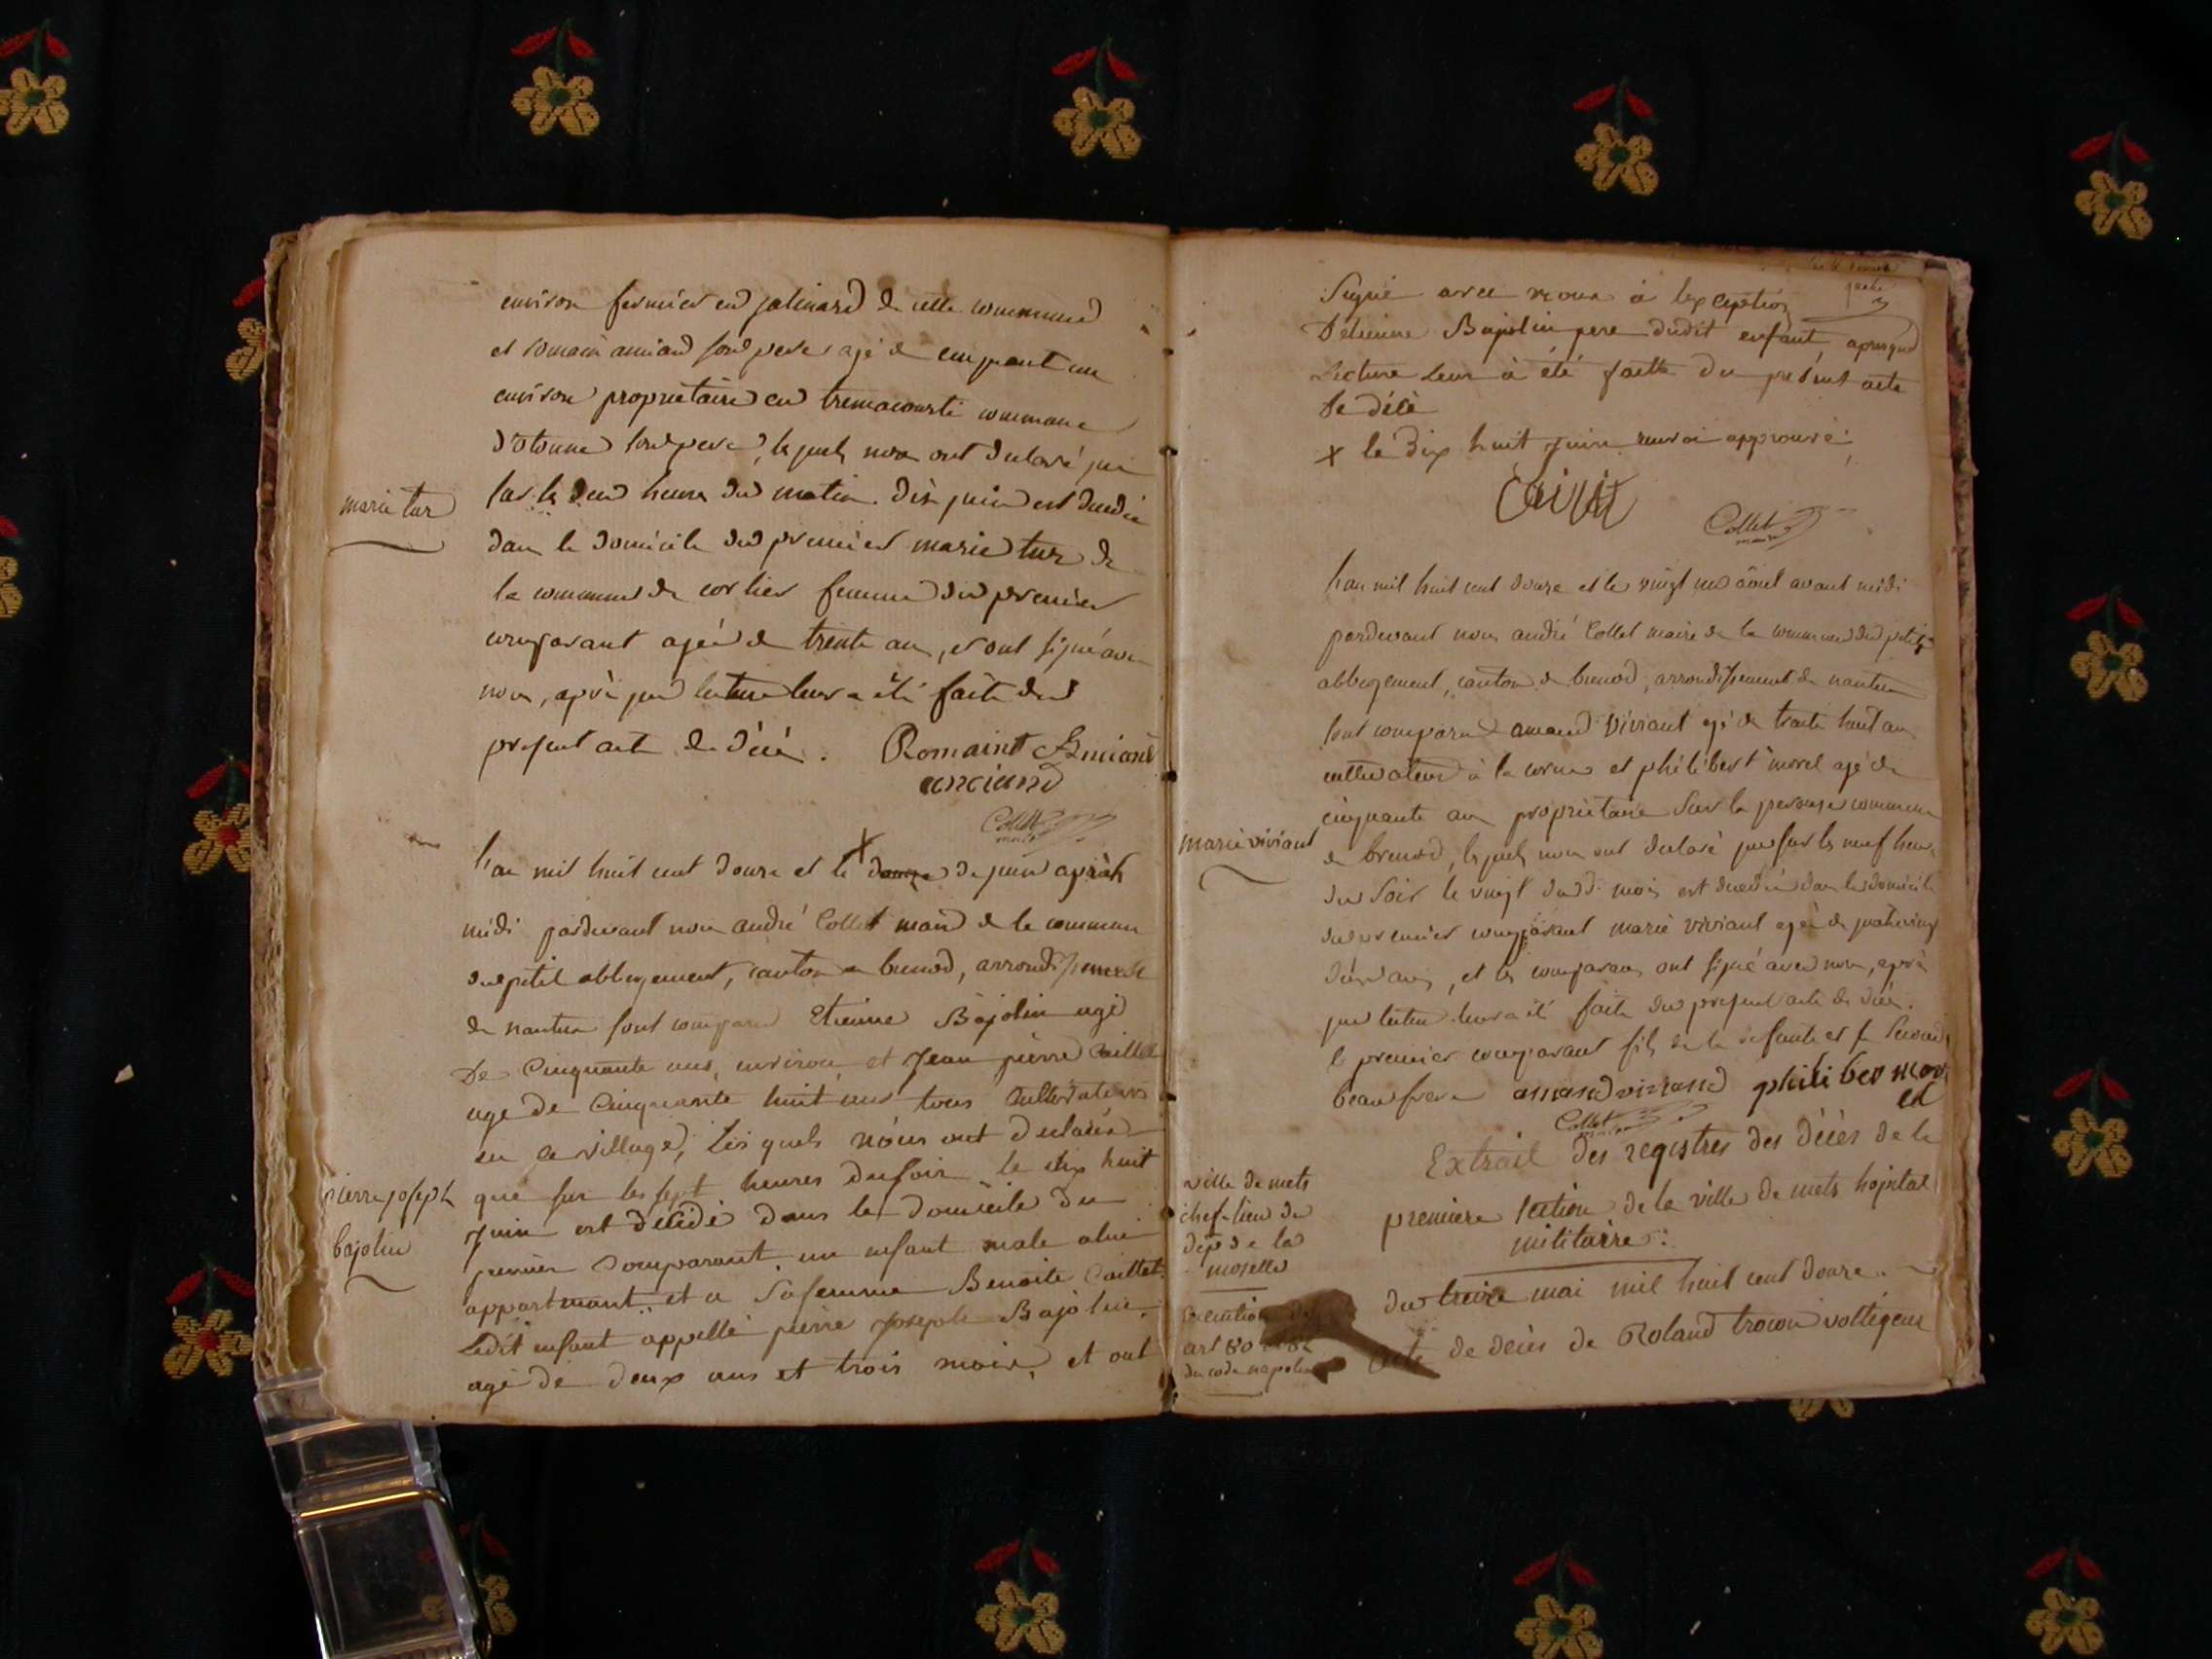 environ fermier en jalinard de cette commune
et romain anciand son pere agé de cinquant ans
environ propriétaire en tremacourti commune
d'otonne son pere, lesquels nous ont declaré que
marie tur
sur les deux heures du matin dix juin est decedée
dans le domicile du premier marie tur de
la commune de corlier femme du premier
comparant agée de trente ans, et ont signé avec
nous, après que lecture leur a été faite du
present acte de décé. Romaint
anciand
Collet
maire
l'an mil huit cent douze et le X douze de juin après
midi pardevant nous andré Collet maire de la commune
du petit abbergement, canton de brenod, arrondissement
de nantua sont comparu Etienne Bajolin agé
De Cinquante ans, environ et Jean pierre Caillet
age de Cinquante huit ans tous Cultivateurs
en ce village, les quels nous ont déclarés
pierre joseph
bajolin
que sur les sept heures du soir le dix huit
Juin est décédé dans le domicile du
premier Comparant un enfant male a lui
appartenant et a Sa femme Benoite Caillet
Ledit enfant appellé pierre Joseph Bajolin
agé de deux ans et trois mois, et ont
Signé avec nous à l'exception
D'etienne Bajolin pere dudit enfant, apresque
Lecture Leur à été faitte du présent acte
De décè
X le dix huit juin renvoi approuvé
Collet
maire
l'an mil huit cent douze et le vingt un aout avant midi
pardevant nous andré Collet maire de la commune du petit
abbergement, canton de brenod, arrondissement de nantua
sont comparu amand viviant agé de trente huit ans
cultivateur à la corne et philibert morel agé de
cinquante ans propriétaire sur la perouse commune
marie viviant
de brenod, lesquels nous ont declaré que sur les neuf heures
du soir le vingt dud. mois est decedée dans le domicile
du premier comparant marie viviant agée de quatrevingt
deux ans, et les comparans ont signé avec nous, après
que lecture leur a été faite du present acte de décé.
le premier comparant fils de la defunte et le second
beau frere amand viviand philiber mor
el
Collet
maire
Extrait des registres des décès de la
premiere section de la ville de mets hopital
militaire :
ville de mets
chef-lieu du
dép. de la
moselle
du treize mai mil huit cent douze.
execution des
art 80
du code napoleon
acte de décès de Roland trocon voltigeur